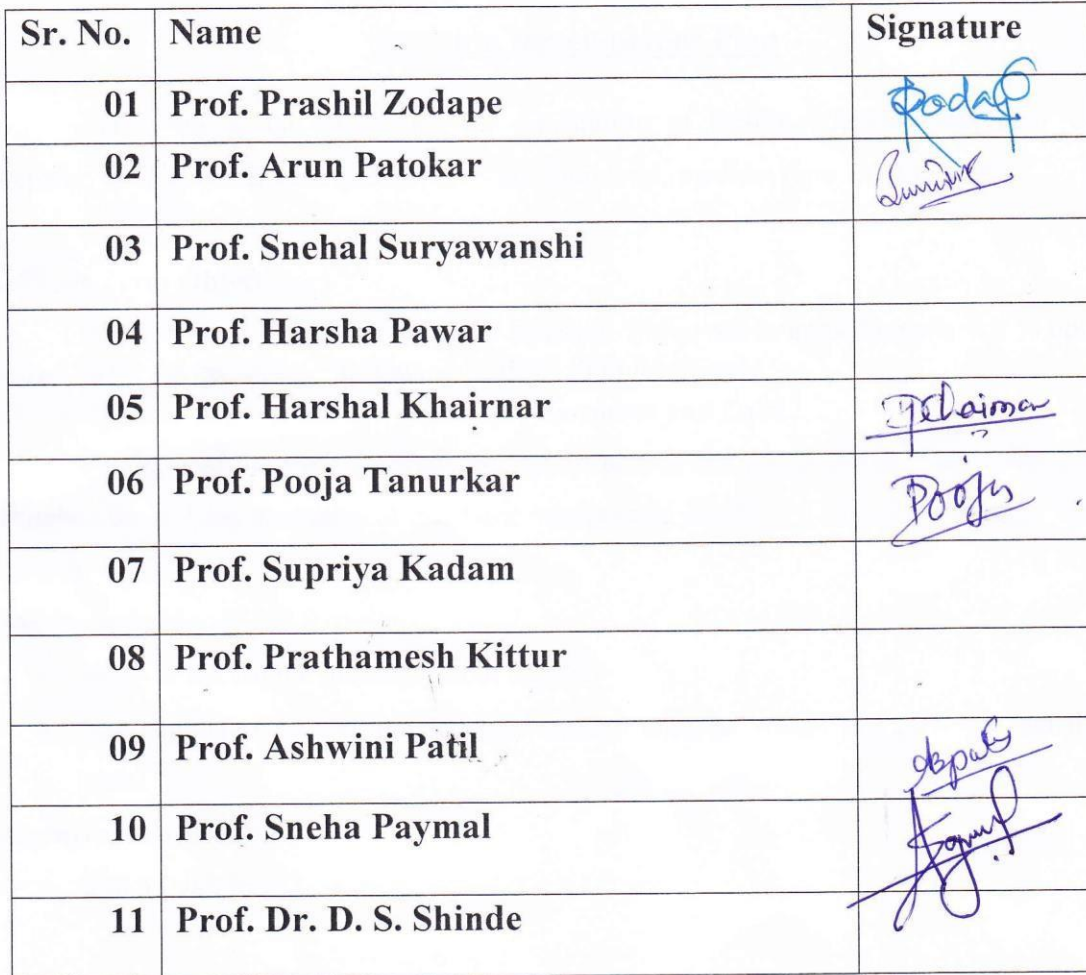 Sr. No. Name Signature
01 Prof. Prashil Zodape
02 Prof. Arun Patokar
03 Prof. Snehal Suryawanshi
04 Prof. Harsha Pawar
05 Prof. Harshal Khairnar
06 Prof. Pooja Tanurkar Pooja
07 Prof. Supriya Kadam
08 Prof. Prathamesh Kittur
09 Prof. Ashwini Patil
10 Prof. Sneha Paymal
11 Prof. Dr. D. S. Shinde